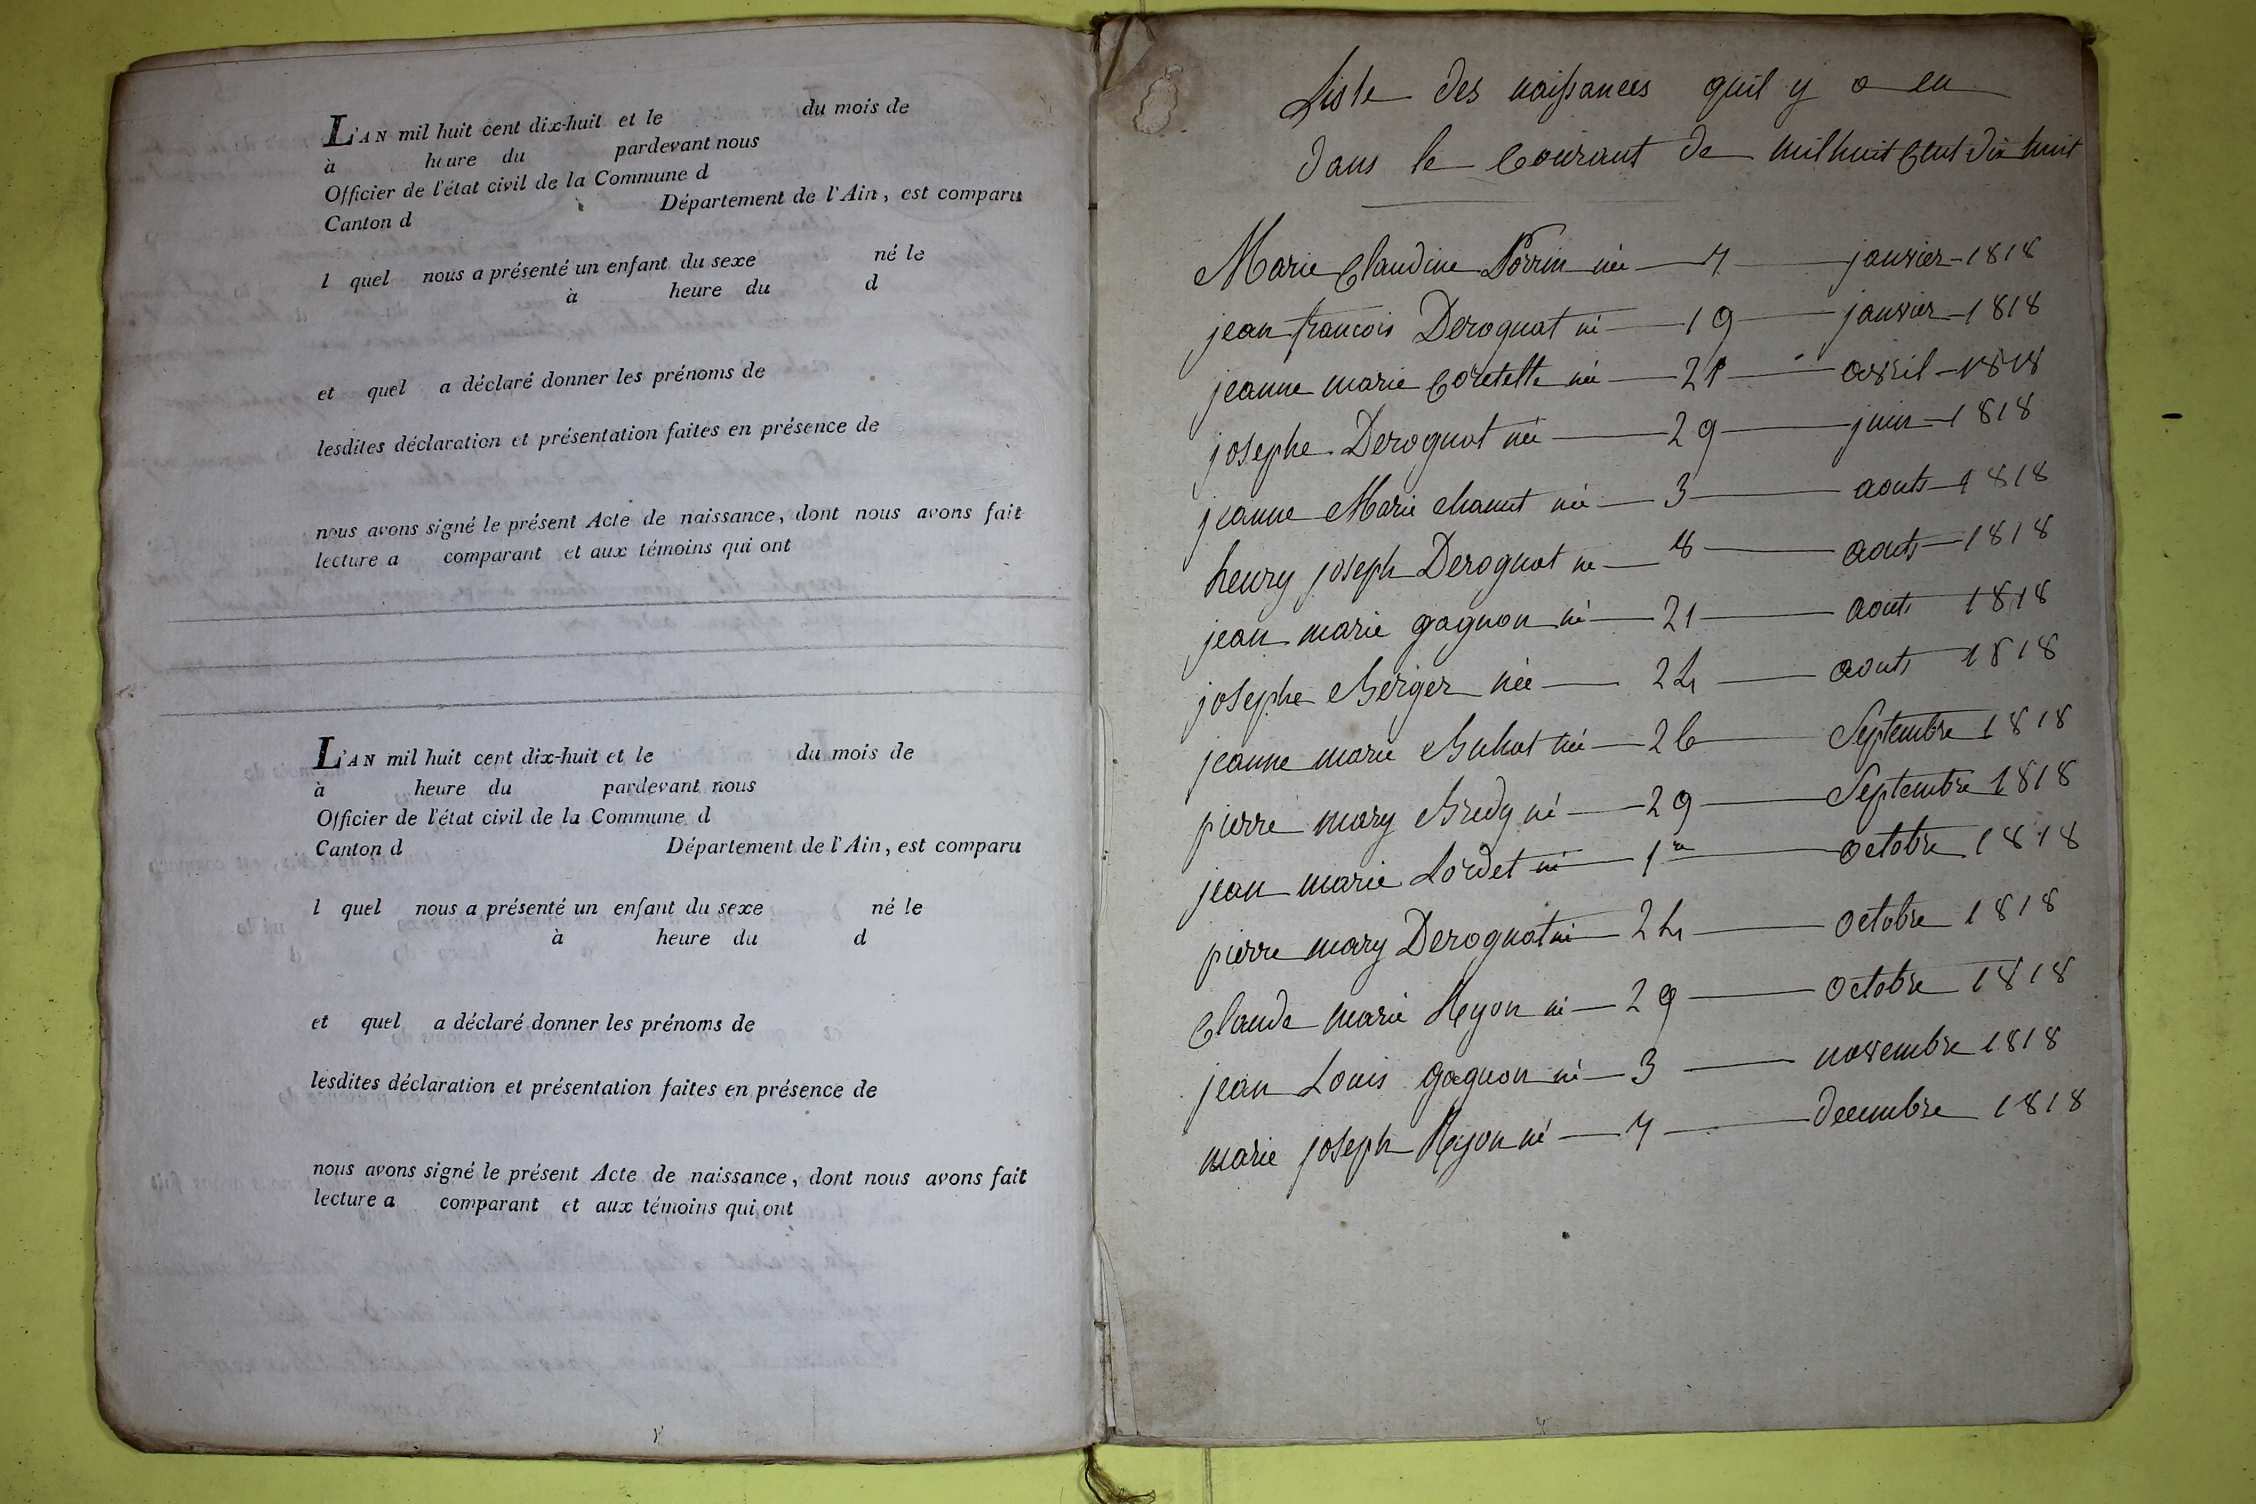 L'AN mil huit cent dix-huit et le du mois de
à heure du pardevant nous
Officier de l'état civil de la Commune d
Canton d Département de l'Ain, est comparu
l quel nous a présenté un enfant du sexe né le
à heure du d
et quel a déclaré donner les prénoms de
lesdites déclaration et présentation faites en présence de
nous avons signé le présent Acte de naissance, dont nous avons fait
lecture a comparant et aux témoins qui ont
L'AN mil huit cent dix-huit et le du mois de
à heure du pardevant nous
Officier de l'état civil de la Commune d
Canton d Département de l'Ain, est comparu
l quel nous a présenté un enfant du sexe né le
à heure du d
et quel a déclaré donner les prénoms de
lesdites déclaration et présentation faites en présence de
nous avons signé le présent Acte de naissance, dont nous avons fait
lecture a comparant et aux témoins qui ont
Liste des naissances quil y a eu
dans le Courant de mil huit Cent dix huit
Marie Claudine Perrin née 7 janvier 1818
jean francois Derognat né 19 janvier 1818
jeanne marie née 21 avril 1818
josephe Derognat née 29 juin 1818
jeanne Marie Chanut née 3 aouts 1818
henry joseph Derognat né 8 aouts 1818
jean marie gagnon né 21 aouts 1818
josephe Berger née 24 aouts 1818
jeanne marie Buhat née 26 Septembre 1818
pierre mary Bredy né 29 Septembre 1818
jean marie Lordet né 1er octobre 1818
pierre mary Derognat né 24 octobre 1818
Claude marie Reyon né 29 octobre 1818
jean Louis gagnon né 3 novembre 1818
marie joseph Reyon né 7 decembre 1818